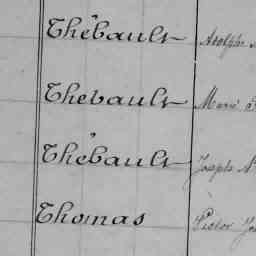 Thébault Adolphe
Thebault Marie
Thébault Joseph
Thomas Victor